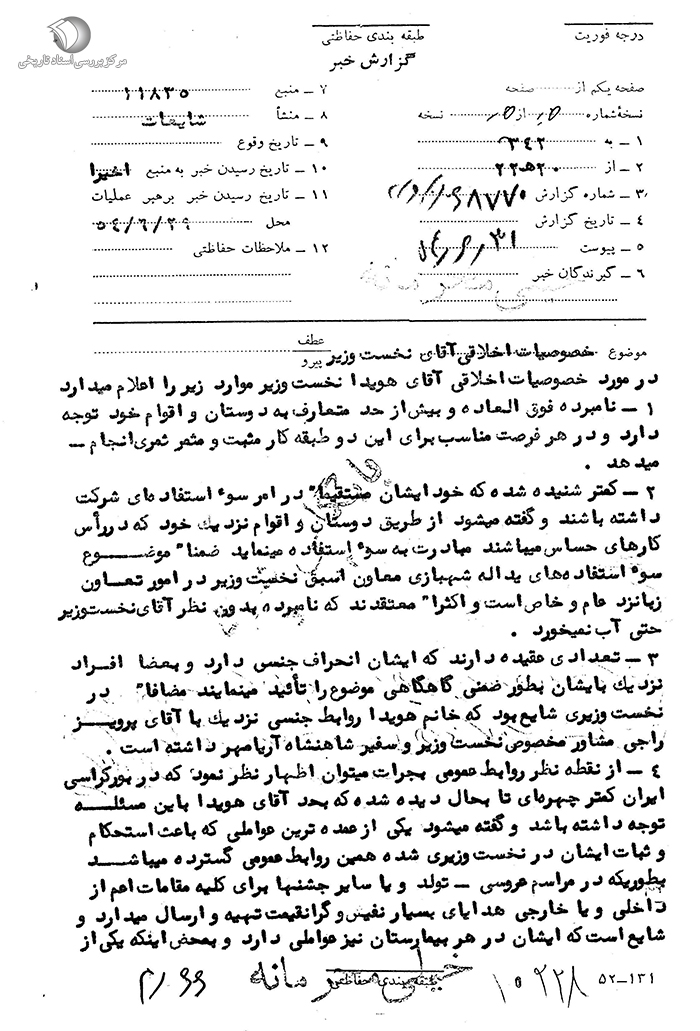 مرکز بررسی اسناد تاریخی
درجه فوریت
طبقه بندی حفاظتی
گزارش خبر
صفحه یکم از صفحه
نسخهٔ شماره از نسخه
۱ – به ۳۴۲
۲ – از ۲۰ ه ۲۲
۳ – شماره گزارش
۴ – تاریخ گزارش
۵ – پیوست
۶ – گیرندگان خبر
۷ – منبع ۱۱۸۳۵
۸ – منشأ شایعات
۹ – تاریخ وقوع
۱۰ – تاریخ رسیدن خبر به منبع اخیرا
۱۱ – تاریخ رسیدن خبر برهبر عملیات
محل ۵۴/۶/۲۹
۱۲ – ملاحظات حفاظتی
موضوع خصوصیات اخلاقی آقای نخست وزیر عطف پیرو
در مورد خصوصیات اخلاقی آقای هویدا نخست وزیر موارد زیر را اعلام میدارد
۱ – نامبرده فوق العاده و بیش از حد متعارف به دوستان و اقوام خود توجه
دارد و در هر فرصت مناسب برای این دو طبقه کار مثبت و مثمر ثمری انجام –
میدهد .
۲ – کمتر شنیده شده که خود ایشان مستقیما" در امر سوء استفاده ای شرکت
داشته باشند و گفته میشود از طریق دوستان و اقوام نزدیک خود که در رأس
کارهای حساس میباشند مبادرت به سوء استفاده مینماید ضمنا" موضوع
سوء استفاده های یداله شهبازی معاون اسبق نخست وزیر در امور تعاون
زبانزد عام و خاص است و اکثرا" معتقدند که نامبرده بدون نظر آقای نخست وزیر
حتی آب نمیخورد .
۳ – تعدادی عقیده دارند که ایشان انحراف جنسی دارد و بعضا افراد
نزدیک بایشان بطور ضمنی گاهگاهی موضوع را تأئید مینمایند مضافا" در
نخست وزیری شایع بود که خانم هویدا روابط جنسی نزدیک با آقای پرویز
راجی مشاور مخصوص نخست وزیر و سفیر شاهنشاه آریامهر داشته است .
۴ – از نقطه نظر روابط عمومی بجرات میتوان اظهار نظر نمود که در بورکراسی
ایران کمتر چهره ای تا بحال دیده شده که بحد آقای هویدا باین مسئله
توجه داشته باشد و گفته میشود یکی از عمده ترین عواملی که باعث استحکام
و ثبات ایشان در نخست وزیری شده همین روابط عمومی گسترده میباشد
بطوریکه در مراسم عروسی – تولد و یا سایر جشنها برای کلیه مقامات اعم از
داخلی و یا خارجی هدایای بسیار نفیس و گرانقیمت تهیه و ارسال میدارد و
شایع است که ایشان در هر بیمارستان نیز عواملی دارد و بمحض اینکه یکی از
طبقه بندی حفاظتی
خیلی محرمانه
۱۰۲۲۸
۵۲–۱۳۱